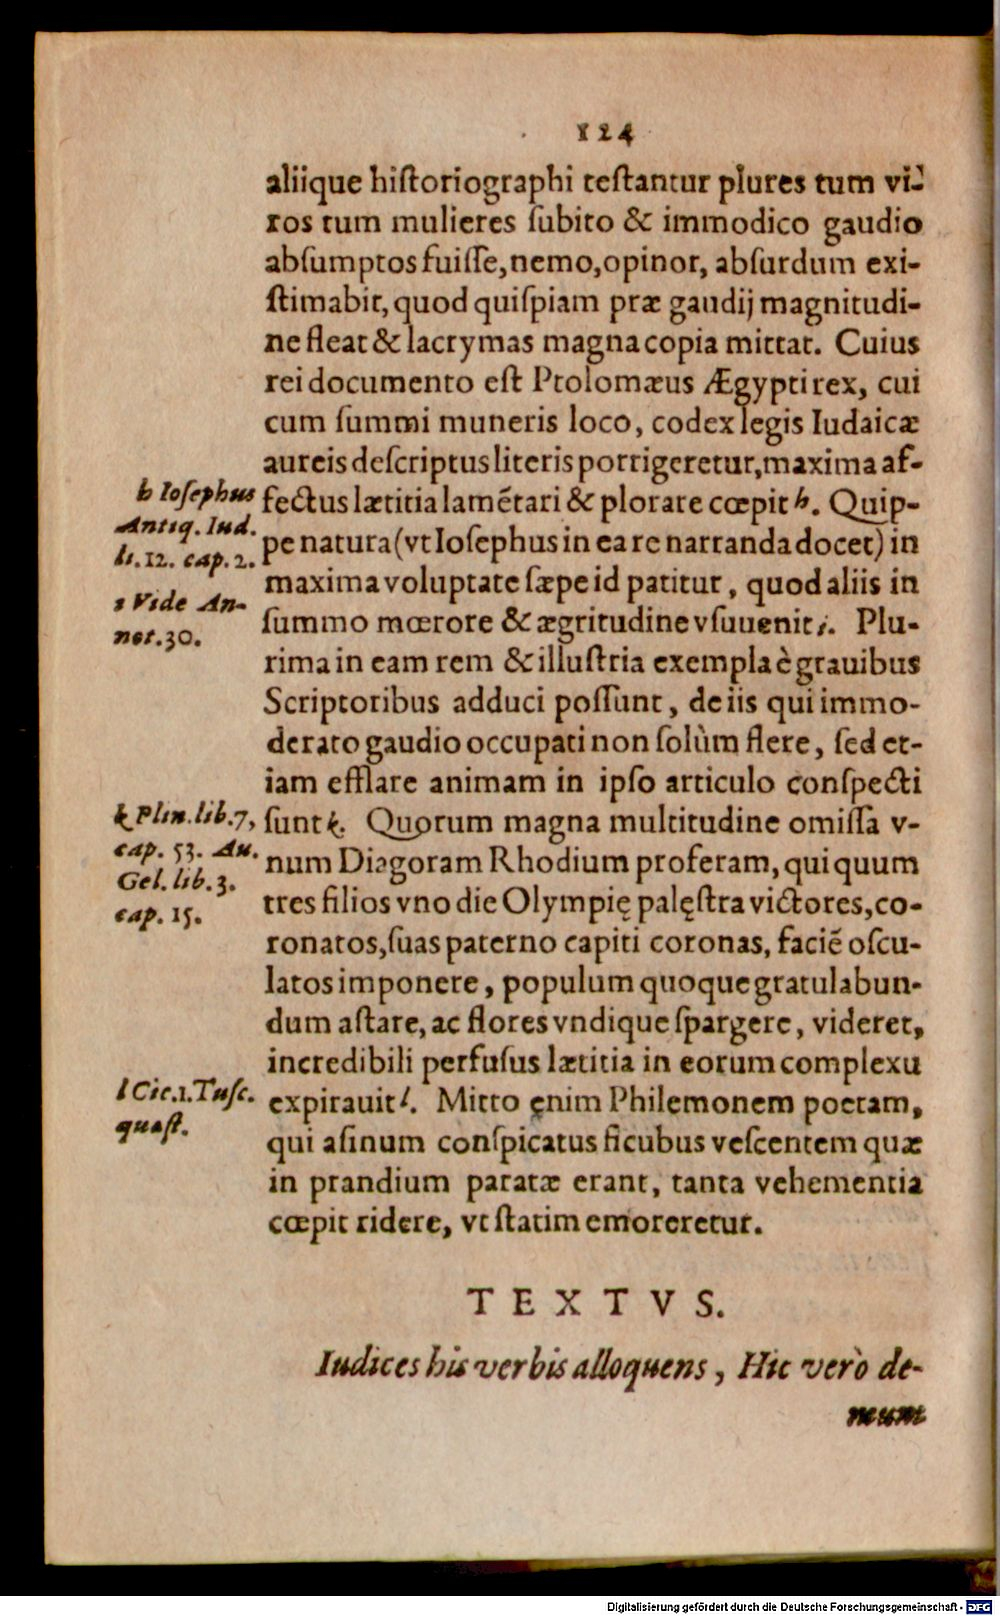 124
aliique hiſtoriographi teſtantur plures tum vi-
ros tum mulieres ſubito & immodico gaudio
abſumptos fuiſſe, nemo, opinor, abſurdum exi-
ſtimabit, quod quiſpiam præ gaudij magnitudi-
ne fleat & lacrymas magna copia mittat. Cuius
rei documento eſt Ptolomæus Ægypti rex, cui
cum ſummi muneris loco, codex legis Iudaicæ
aureis deſcriptus literis porrigeretur, maxima af-
fectus lætitia lamẽtari & plorare cœpit h. Quip-
pe natura (vt Ioſephus in ea re narranda docet) in
maxima voluptate ſæpe id patitur, quod aliis in
ſummo mœrore & ægritudine vſuuenit i. Plu-
rima in eam rem & illuſtria exempla è grauibus
Scriptoribus adduci poſſunt, de iis qui immo-
derato gaudio occupati non ſolùm flere, ſed et-
iam efflare animam in ipſo articulo conſpecti
ſunt k. Quorum magna multitudine omiſſa v-
num Diagoram Rhodium proferam, qui quum
tres filios vno die Olympię palęſtra victores, co-
ronatos, ſuas paterno capiti coronas, faciẽ oſcu-
latos imponere, populum quoque gratulabun-
dum aſtare, ac flores vndique ſpargere, videret,
incredibili perfuſus lætitia in eorum complexu
expirauit l. Mitto enim Philemonem poetam,
qui aſinum conſpicatus ficubus veſcentem quæ
in prandium paratæ erant, tanta vehementia
cœpit ridere, vt ſtatim emoreretur.
h Ioſephus
Antiq. Iud.
li. 12. cap. 2.
i Vide An-
not. 30.
k Plin. lib. 7,
cap. 53. Au.
Gel. lib. 3.
cap. 15.
l Cic. 1. Tuſc.
quæſt.
TEXTVS.
Iudices his verbis alloquens, Hic verò de-
mum
Digitalisierung gefördert durch die Deutsche Forschungsgemeinschaft - DFG